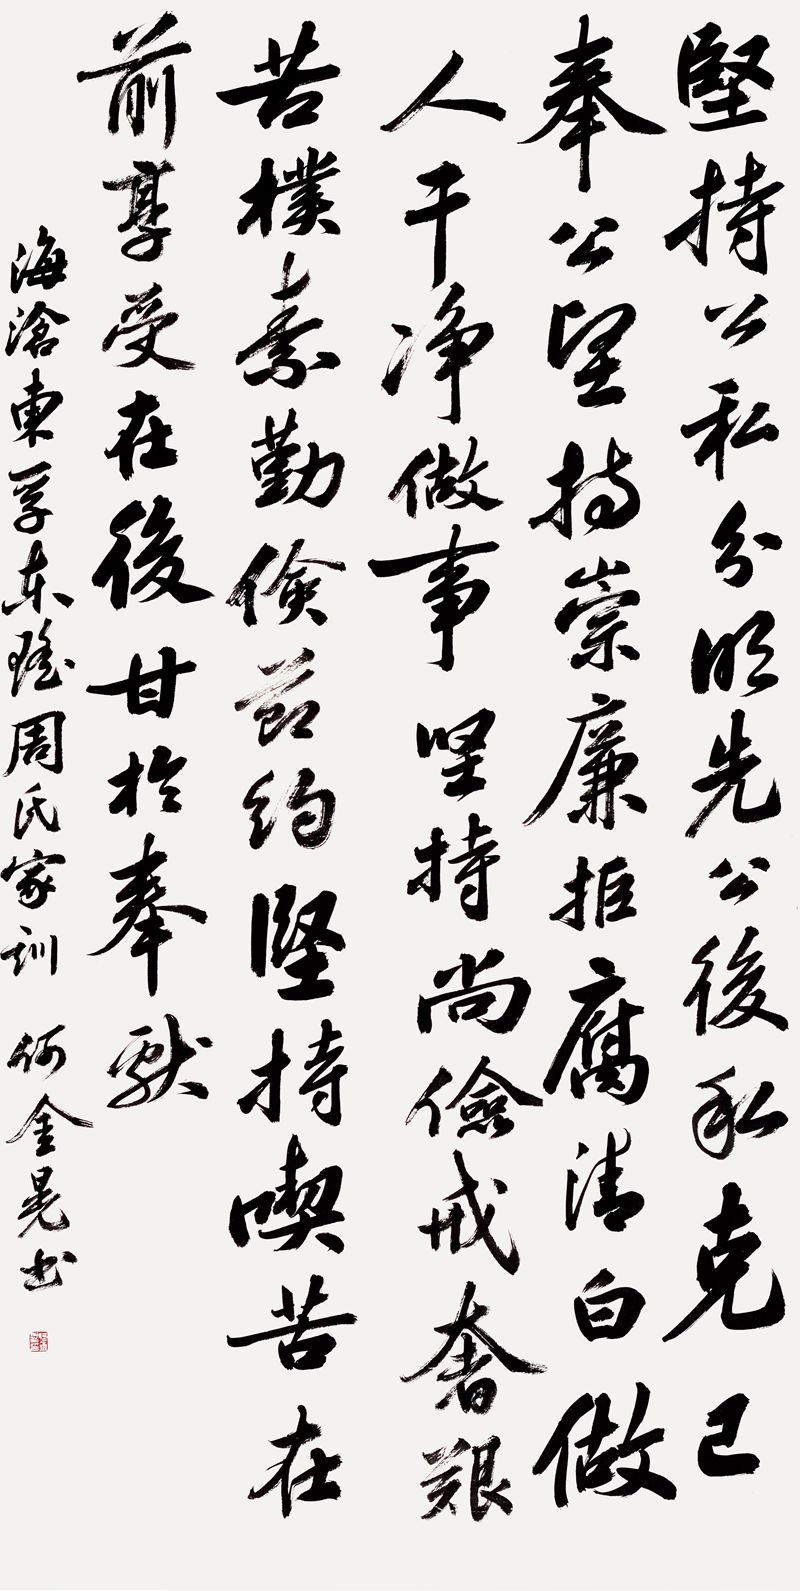 堅持公私分明先公後私克己
奉公堅持崇廉拒腐清白做
人干净做事堅持尚儉戒奢艱
苦樸素勤儉節約堅持喫苦在
前享受在後甘於奉獻
海滄東孚东瑤周氏家训 何金晃书